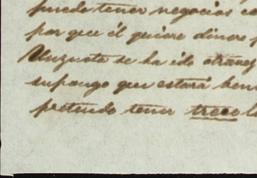 puede tener negocios co
por que él quiere dinero p
Unzueta se ha ido otravez
supongo que estará ben
pretende tener trece lo